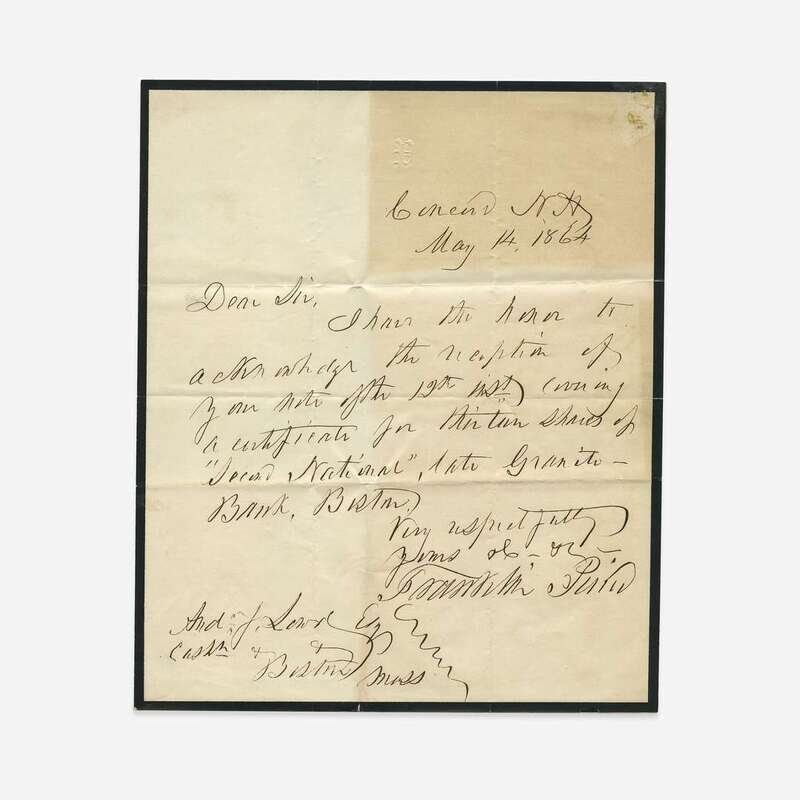 Concord N.H.
May 14, 1864
Dear Sir,
I have the honor to
acknowledge the reception of
your note of the 12th inst. covering
a certificate for thirteen shares of
"Second National", late Granite -
Bank, Boston.
Very respectfully
Yours &c - &c -
Franklin Pierce
And. J. Esq
Cashr & &
Boston
Mass